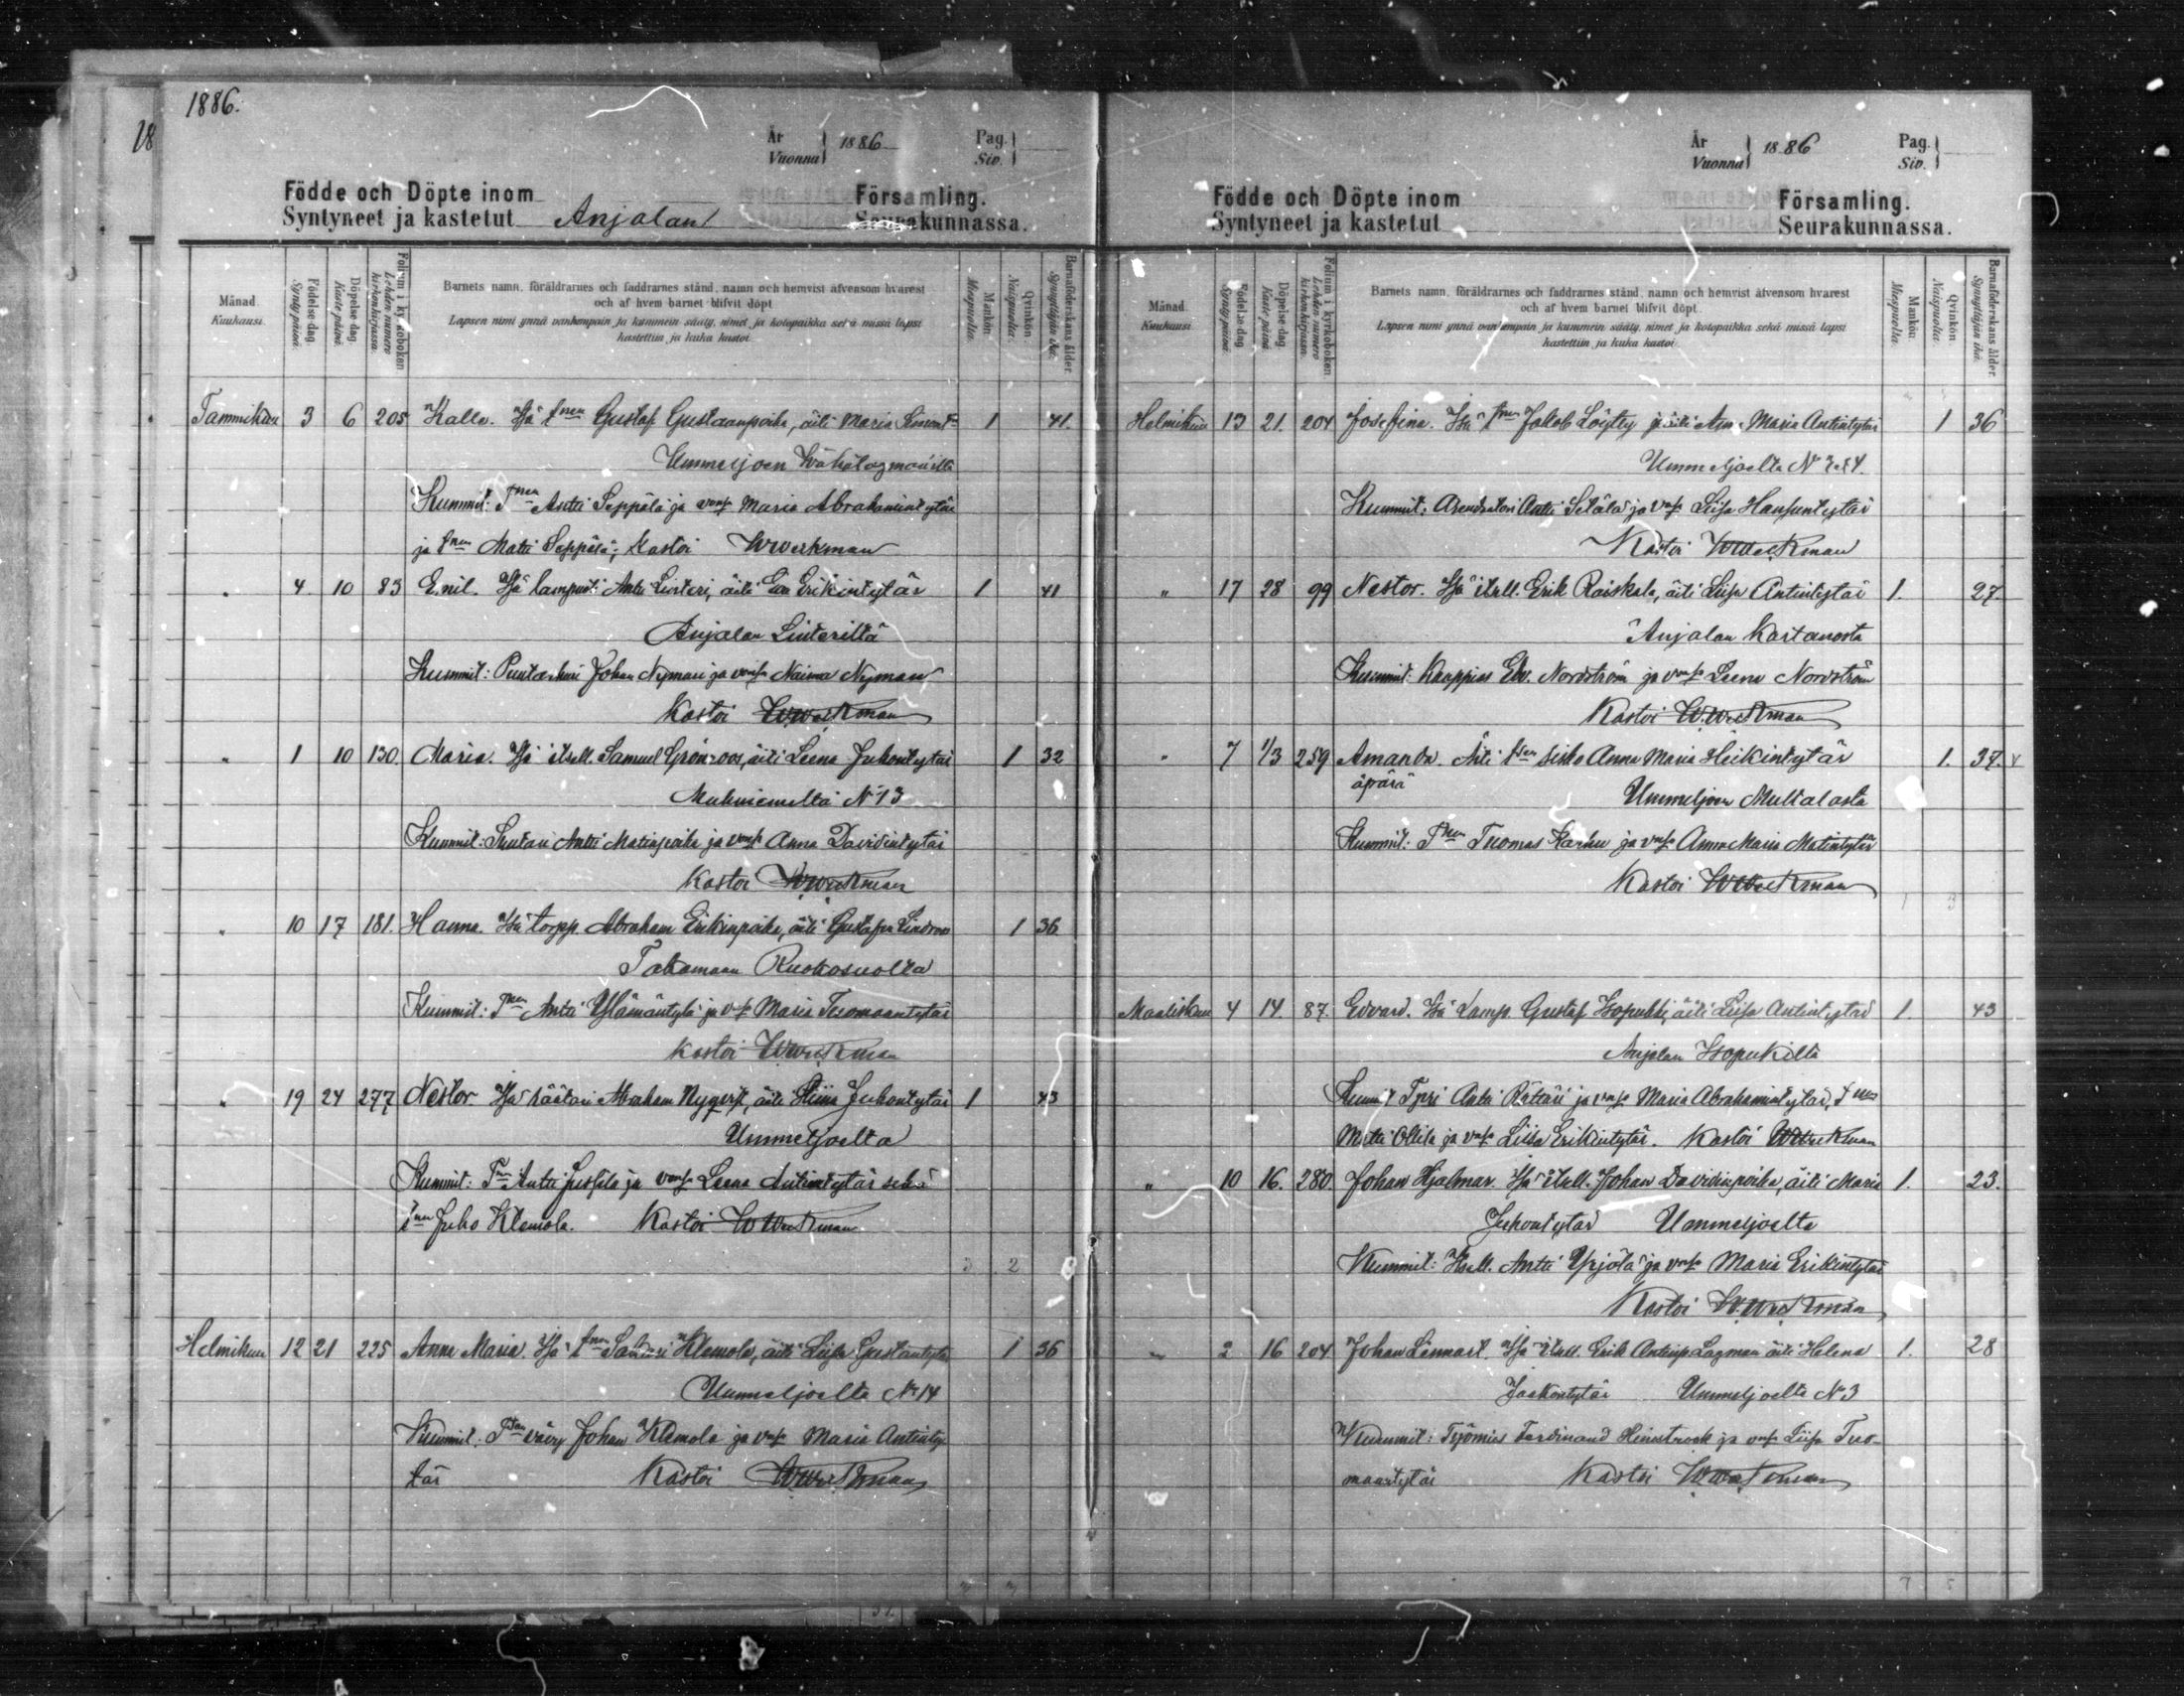 1886.
18
År Vuonna } 1886 Pag. Siv. }
Födde och Döpte inom Församling.
Syntyneet ja kastetut Anjalan Seurakunnassa.
Månad. Kuukausi.
Födelse dag. Synty päivä.
Döpelse dag. Kaste päivä.
Folium i kyrkoboken Lehden numero kirkonkirjassa.
Barnets namn, föräldrarnes och faddrarnes stånd, namn och hemvist äfvensom hvarest
och af hvem barnet blifvit döpt.
Lapsen nimi ynnä vanhempain ja kummein sääty, nimet ja kotopaikka sekä missä lapsi
kastettiin ja kuka kastoi.
Mankön. Miespuolia.
Qvinkön Naispuolia.
Barnaföderskans ålder. Synnyttäjän ikä.
Tammikuu 3 6 205 Kalle. Isä tmen Gustaf Gustaanpoika, äiti Maria Simont: 1 41.
Ummeljoen Wähälagmanilla
Kummit: Tmen Antti Seppälä ja vmsa Maria Abrahamintytär
ja tmen Matti Seppälä; Kastoi WWerkman
" 4. 10 83 Emil. Isä lampuoti Antti Linteri, äiti Eva Erikintytär 1 41
Anjalan Linteriltä
Kummit: Puutarhuri Johan Nyman ja vmsa Naima Nyman
Kastoi WWerkman
" 1 10 130. Maria. Isä itsell. Samuel Grönroos, äiti Leena Juhontytär 1 32
Muhniemeltä No 13
Kummit: Suutari Antti Matinpoika ja vmsa Anna Davidintytär
Kastoi WWerkman
" 10 17 181. Hanna. Isä torpp. Abraham Erikinpoika, äiti Gustafva Lindroos 1 36
Takamaan Ruokosuolta
Kummit: Tmen Antti Ylämäntylä ja vmsa Maria Tuomaantytär
Kastoi WWerkman
" 19 24 277 Nestor Isä räätäri Abraham Nyqvist, äiti Stiina Juhontytär 1 43
Ummeljoelta
Kummit: Tmen Antti Jussila ja vmsa Leena Antintytär sekä
tmen Juho Klemola. Kastoi WWerkman
3 2
Helmikuu 12 21 225 Anna Maria. Isä tmen Klemola, äiti Liisa Gustaantytär 1 36
Ummeljoelta No 14
Kummit: Tman vävy Johan Klemola ja vmsa Maria Antinty-
tär Kastoi WWerkman
År Vuonna } 1886 Pag. Siv. }
Födde och Döpte inom Församling.
Syntyneet ja kastetut Seurakunnassa.
Månad. Kuukausi.
Födelse dag. Synty päivä.
Döpelse dag. Kaste päivä.
Folium i kyrkoboken Lehden numero kirkonkirjassa.
Barnets namn, föräldrarnes och faddrarnes stånd, namn och hemvist äfvensom hvarest
och af hvem barnet blifvit döpt.
Lapsen nimi ynnä vanhempain ja kummein sääty, nimet ja kotopaikka sekä missä lapsi
kastettiin ja kuka kastoi.
Mankön. Miespuolia.
Qvinkön Naispuolia.
Barnaföderskans ålder. Synnyttäjän ikä.
Helmikuu 13 21. 204 Josefina. Isä tmen Jakob Löytty ja äiti Anna Maria Antintytär 1 36
Ummeljoelta No
Kummit: Arendatori Antti Setälä ja vmsa Liisa Hansuntytär
Kastoi WWerkman
" 17 28 99 Nestor. Isä itsell. Erik Raiskala, äiti Liisa Antintytär 1. 27.
Anjalan Kartanosta
Kummit: Kauppias Edv. Nordström ja vmsa Leena Nordström
Kastoi W.Werkman
" 7 1/3 259 Amanda. Äiti tsen sisko Anna Maria Heikintytär 1. 37.
äpärä
Ummeljoen Multalasta
Kummit: Tmen Tuomas Karhu ja vmsa Anna Maria Matintytär
Kastoi WWerkman
1 3
Maaliskuu 4 14. 87. Edvard. Isä Lamp. Gustaf Isopukki, äiti Liisa Antintytär 1. 43
Anjalan Isopukilta
Kummit Tpri Antti Rättäri ja vmsa Maria Abrahamintytär, tmen
Matti Ollila ja vmsa Liisa Erikintytär. Kastoi WWerkman
" 10 16. 280. Johan Hjalmar. Isä itsell. Johan Davidinpoika, äiti Maria 1. 23.
Juhontytär Ummeljoelta
Kummit: Itsell. Antti Yrjölä ja vmsa Maria Erikintytär
Kastoi W.Werkman
" 2 16 204 Johan Lennart. Isä itsell. Erik Antinp. Lagman äiti Helena 1. 28
Jaakontytär Ummeljoelta No 3
Kummit: Työmies Ferdinand ja vmsa Liisa Tuo-
maantytär Kastoi WWerkman
7 5